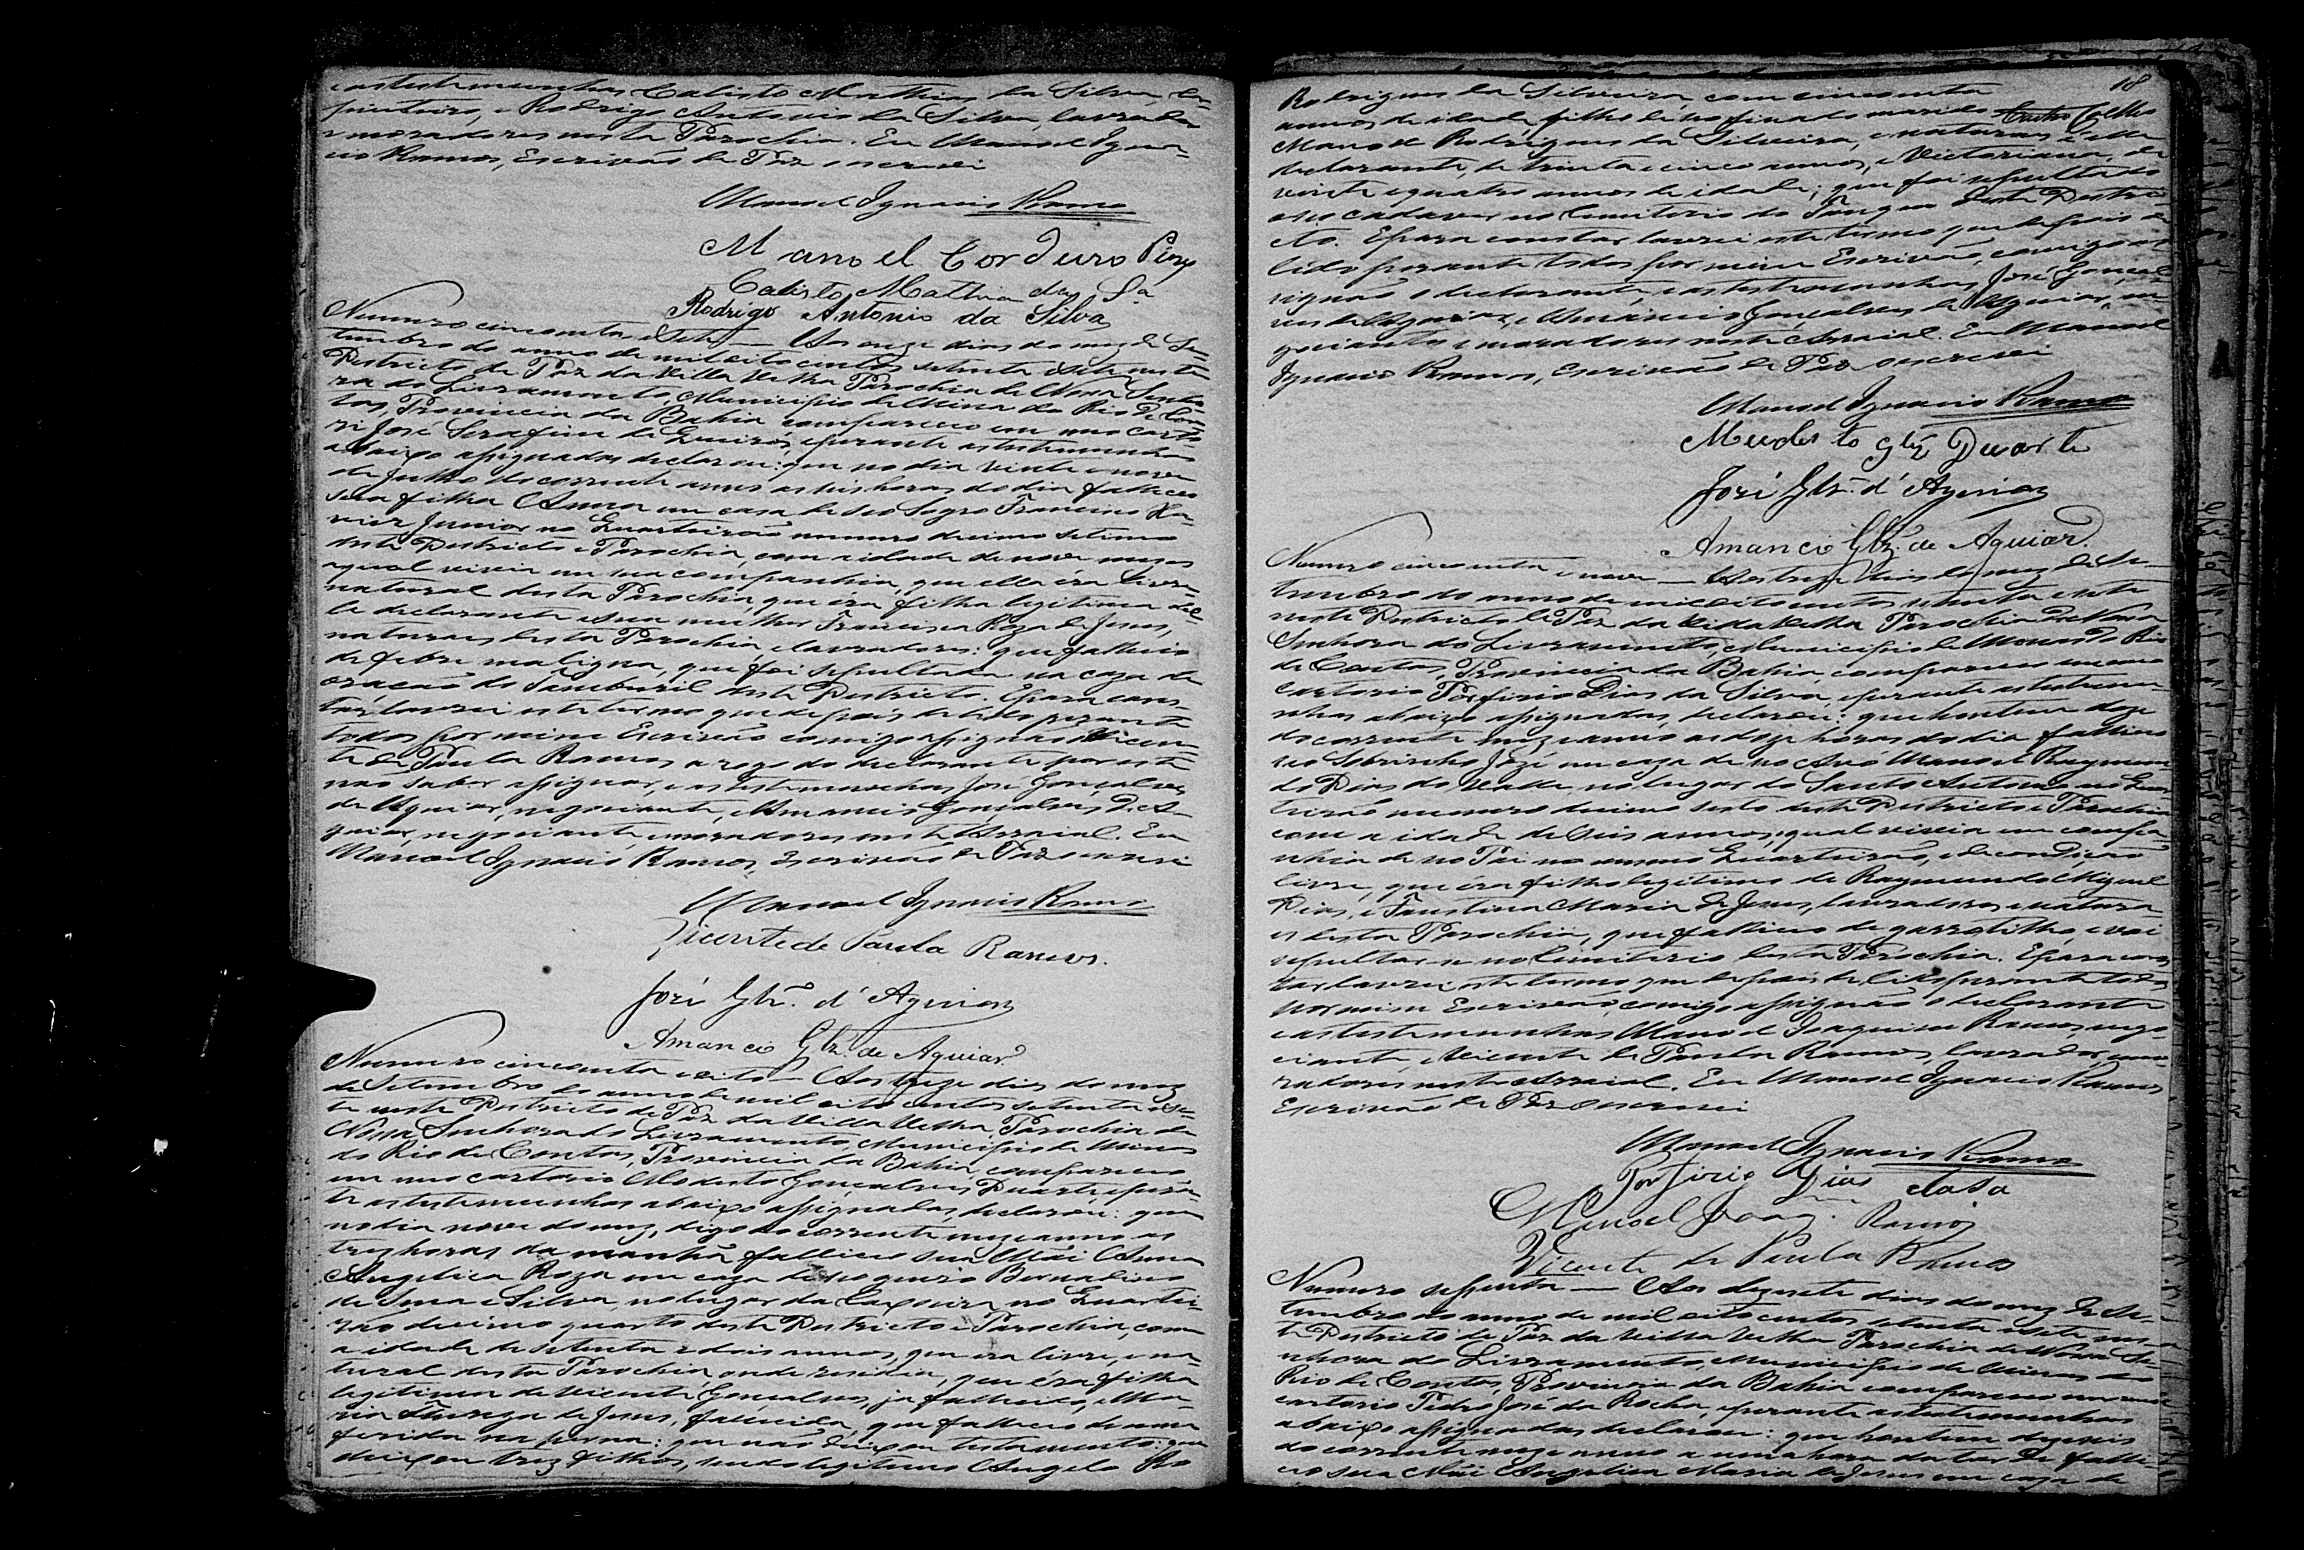 e as testemunhas Calisto Mathias da Silva, Ca-
pinteiro, e Rodrigo Antonio da Silva, lavrador
e moradores nesta Parochia. Eu Manoel Igna-
cio Ramos, Escrivão de Paz o escrevi
Manoel Ignacio Ramos
Manoel Cordeiro Pires
Calisto Mathia da Sa
Rodrigo Antonio da Silva
Numero cincoenta e Sete — Aos onze dias do mez de Se-
tembro do anno de mil oito centos setenta e sete neste
Destricto de Paz da Villa Velha Parochia de Nossa Senho-
ra do Livramento, Municipio de Minas do Rio de Con-
tas, Provincia da Bahia compareceo em meo Carto-
ri José Serafim de Queiroz, e perante as testemunhas
abaixo assignadas declarou: que no dia vinte e nove
de Julho do corrente anno as seis horas do dia falleceo
sua filha Anna em casa de seo Sogro Francisco Xa-
vier Junior no Quarteirão numero decimo setimo
deste Destricto e Parochia, com a idade de nove mezes
a qual vivia em sua companhia, que ella éra livre,
natural desta Parochia, que éra filha legitima del-
le declarante e sua mulher Francisca Roza de Jesus,
naturaes desta Parochia, e lavradores: que falleceo
de febre maligna, que foi sepultada na caza de
oração do Tamburil deste Destricto. E para cons-
tar lavrei este termo que depois de lido perante
todos por mim Escrivão comigo assignão Vicen-
te de Paula Ramos a rogo do declarante por este
não saber assignar, e as testemunhas José Gonçalves
de Aguiar, negociante, e Amancio Gonçalves de A-
guiar, negociante, moradores neste Arraial. Eu
Manoel Ignacio Ramos, Escrivão de Paz o escrevi
Manoel Ignacio Ramos
Vicente de Paula Ramos.
José Glz. d'Aguiar
Amancio Glz. de Aguiar.
Numero cincoenta e oito — Aos treze dias do mez
de Setembro do anno de mil oito centos setenta e se-
te neste Destricto de Paz da Villa Velha Parochia de
Nossa Senhora do Livramento, Municipio de Minas
do Rio de Contas, Provincia da Bahia, compareceo
em meo cartorio Modesto Gonçalves Duarte e peran-
te as testemunhas abaixo assignadas, declarou: que
no dia nove do mez, digo do corrente mez e anno as
trez horas da manhã falleceo sua Mãi Anna
Angelica Roza em caza de seo genro Bernardino
de Sena e Silva, no lugar da no Quartei-
rão decimo quarto deste Destricto e Parochia, com
a idade de setenta e dois annos, que era livre, e na-
tural desta Parochia, onde residia, que éra filha
legitima de Vicente Gonçalves, ja fallecido, e Ma-
ria Thereza de Jesus, fallecida, que falleceo de uma
ferida na perna: que não deixou testamento: que
deixou trez filhos, sendo legitimos Angelo Ro
18
Rodrigues da Silveira, com cincoenta
annos de idade, filho de seo finado marido
Manoel Rodrigues da Silveira, e naturaes elle
declarante, de trinta e cinco annos, e Victoriana, de
vinte e quatro annos de idade; que foi sepultado
o seo cadaver no Cemiterio do deste Destri-
cto. E para constar lavrei este termo que depois de
lido perante todos por mim Escrivão, comigo as-
signão o declarante, e as testemunhas José Gonçal-
ves de Aguiar, e Amancio Gonçalves de Aguiar, ne-
gociantes e moradores neste Arraial. Eu Manoel
Ignacio Ramos, Escrivão de Paz o escrevi
Manoel Ignacio Ramos
Modesto Glz Duarte
José Glz. d'Aguiar
Amancio Glz. de Aguiar.
Numero cincoenta e nove — Aos treze dias do mez de Se-
tembro do anno de mil oito centos setenta e sete
neste Destricto de Paz da Villa Velha Parochia de Nossa
Senhora do Livramento, Municipio de Minas do Rio
de Contas, Provincia da Bahia, compareceo em meo
cartorio Porfirio Dias da Silva, e perante as testemu-
nhas abaixo assignadas, declarou: que hontem doze
do corrente mez e anno as doze horas do dia falleceo
seo Sobrinho José em caza de seo Avó Manoel Raymun-
do Dias do Valle, no lugar do Santo Antonio, no Quar-
teirão numero decimo sexto deste Destricto e Parochia
com a idade de seis annos, o qual vivia em compa-
nhia de seo Pai no mesmo Quarteirão, e de condição
livre, que éra filho legitimo de Raymundo Miguel
Dias, e Faustina Maria de Jesus, lavradores e natura-
es desta Parochia, que falleceo de garrotilho, e vai
sepultar-se no Cemiterio desta Parochia. E para cons-
tar lavrei este termo que depois de lido perante todos
por mim Escrivão, comigo assignão o declarante
e as testemunhas Manoel Joaquim Ramos, nego-
ciante, e Vicente de Paula Ramos, lavrador, mo-
radores neste Arraial. Eu Manoel Ignacio Ramos
Escrivão de Paz o escrevi
Manoel Ignacio Ramos
Porfirio Dias da Sa
Manoel Joaq. Ramos
Vicente de Paula Ramos
Numero sessenta — Aos dezesete dias do mez de Se-
tembro do anno de mil oito centos setenta e sete nes-
te Destricto de Paz da Villa Velha Parochia de Nossa Se-
nhora do Livramento, Municipio de Minas do
Rio de Contas, Provincia da Bahia compareceo em meo
cartorio Pedro José da Rocha, e perante as testemunhas
abaixo assignadas declarou: que hontem dezeseis
do corrente mez e anno a uma hora da tarde falle-
ceo sua Mãi Angelica Maria de Jesus em caza de